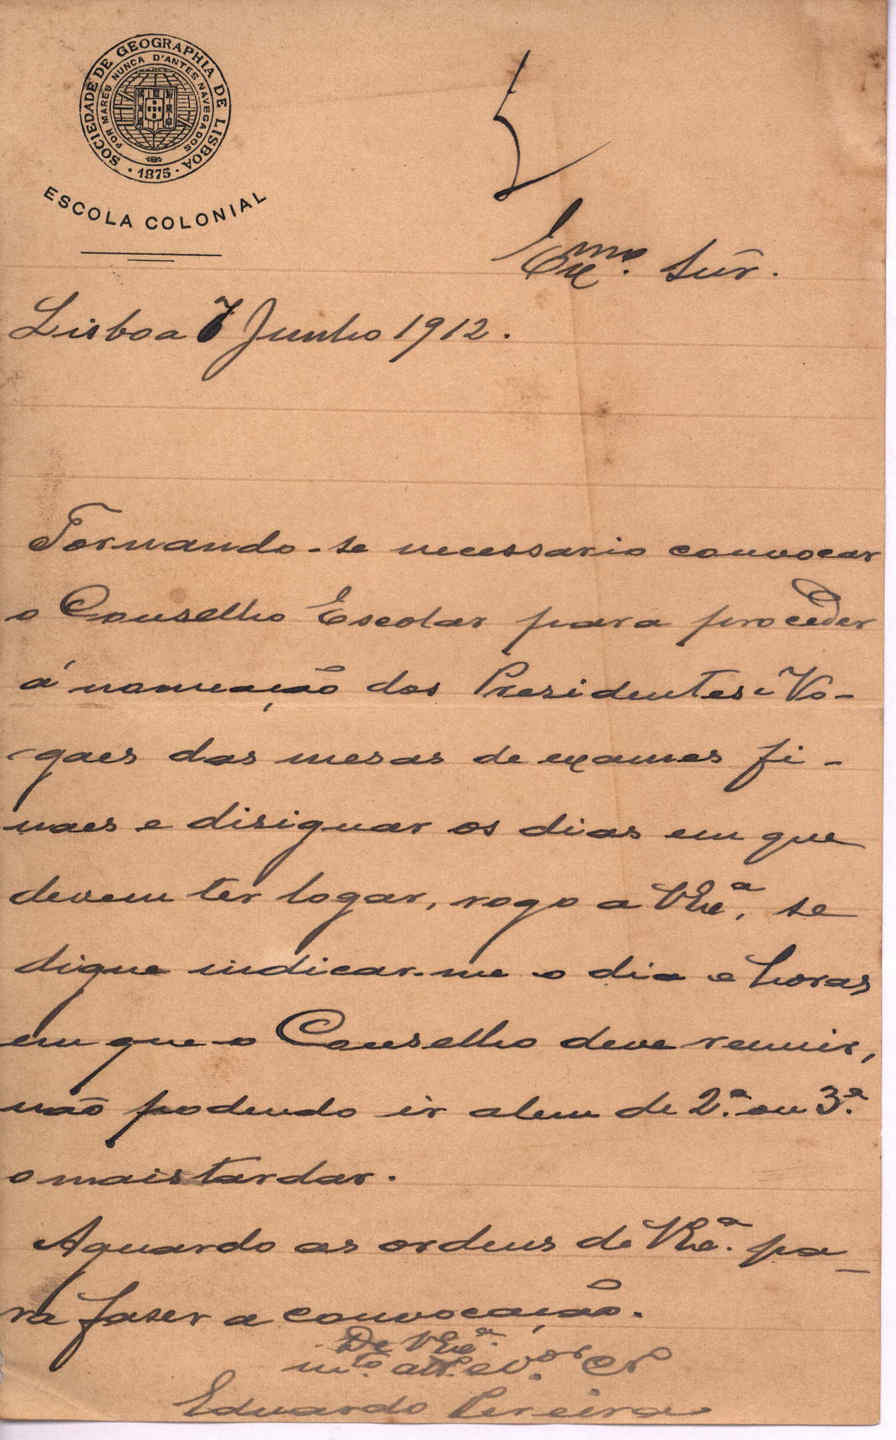 SOCIEDADE DE GEOGRAPHIA DE LISBOA
POR MARES NUNCA D'ANTES NAVEGADOS
· 1875 ·
ESCOLA COLONIAL
Exmo. Snr.
Lisboa 7 Junho 1912.
Tornando-se necessario convocar
o Conselho Escolar para proceder
á nomeação dos Presidentes e Vo-
gaes das mesas de exames fi-
naes e disignar os dias em que
devem ter logar, rogo a VExª, se
digne indicar-me o dia e horas
em que o Conselho deve reunir,
não podendo ir alem de 2.ª ou 3.ª
o mais tardar.
Aguardo as ordens de VExª. pa-
ra faser a convocação.
De VExª.
mto. attº. e vor. 
Eduardo Pereira